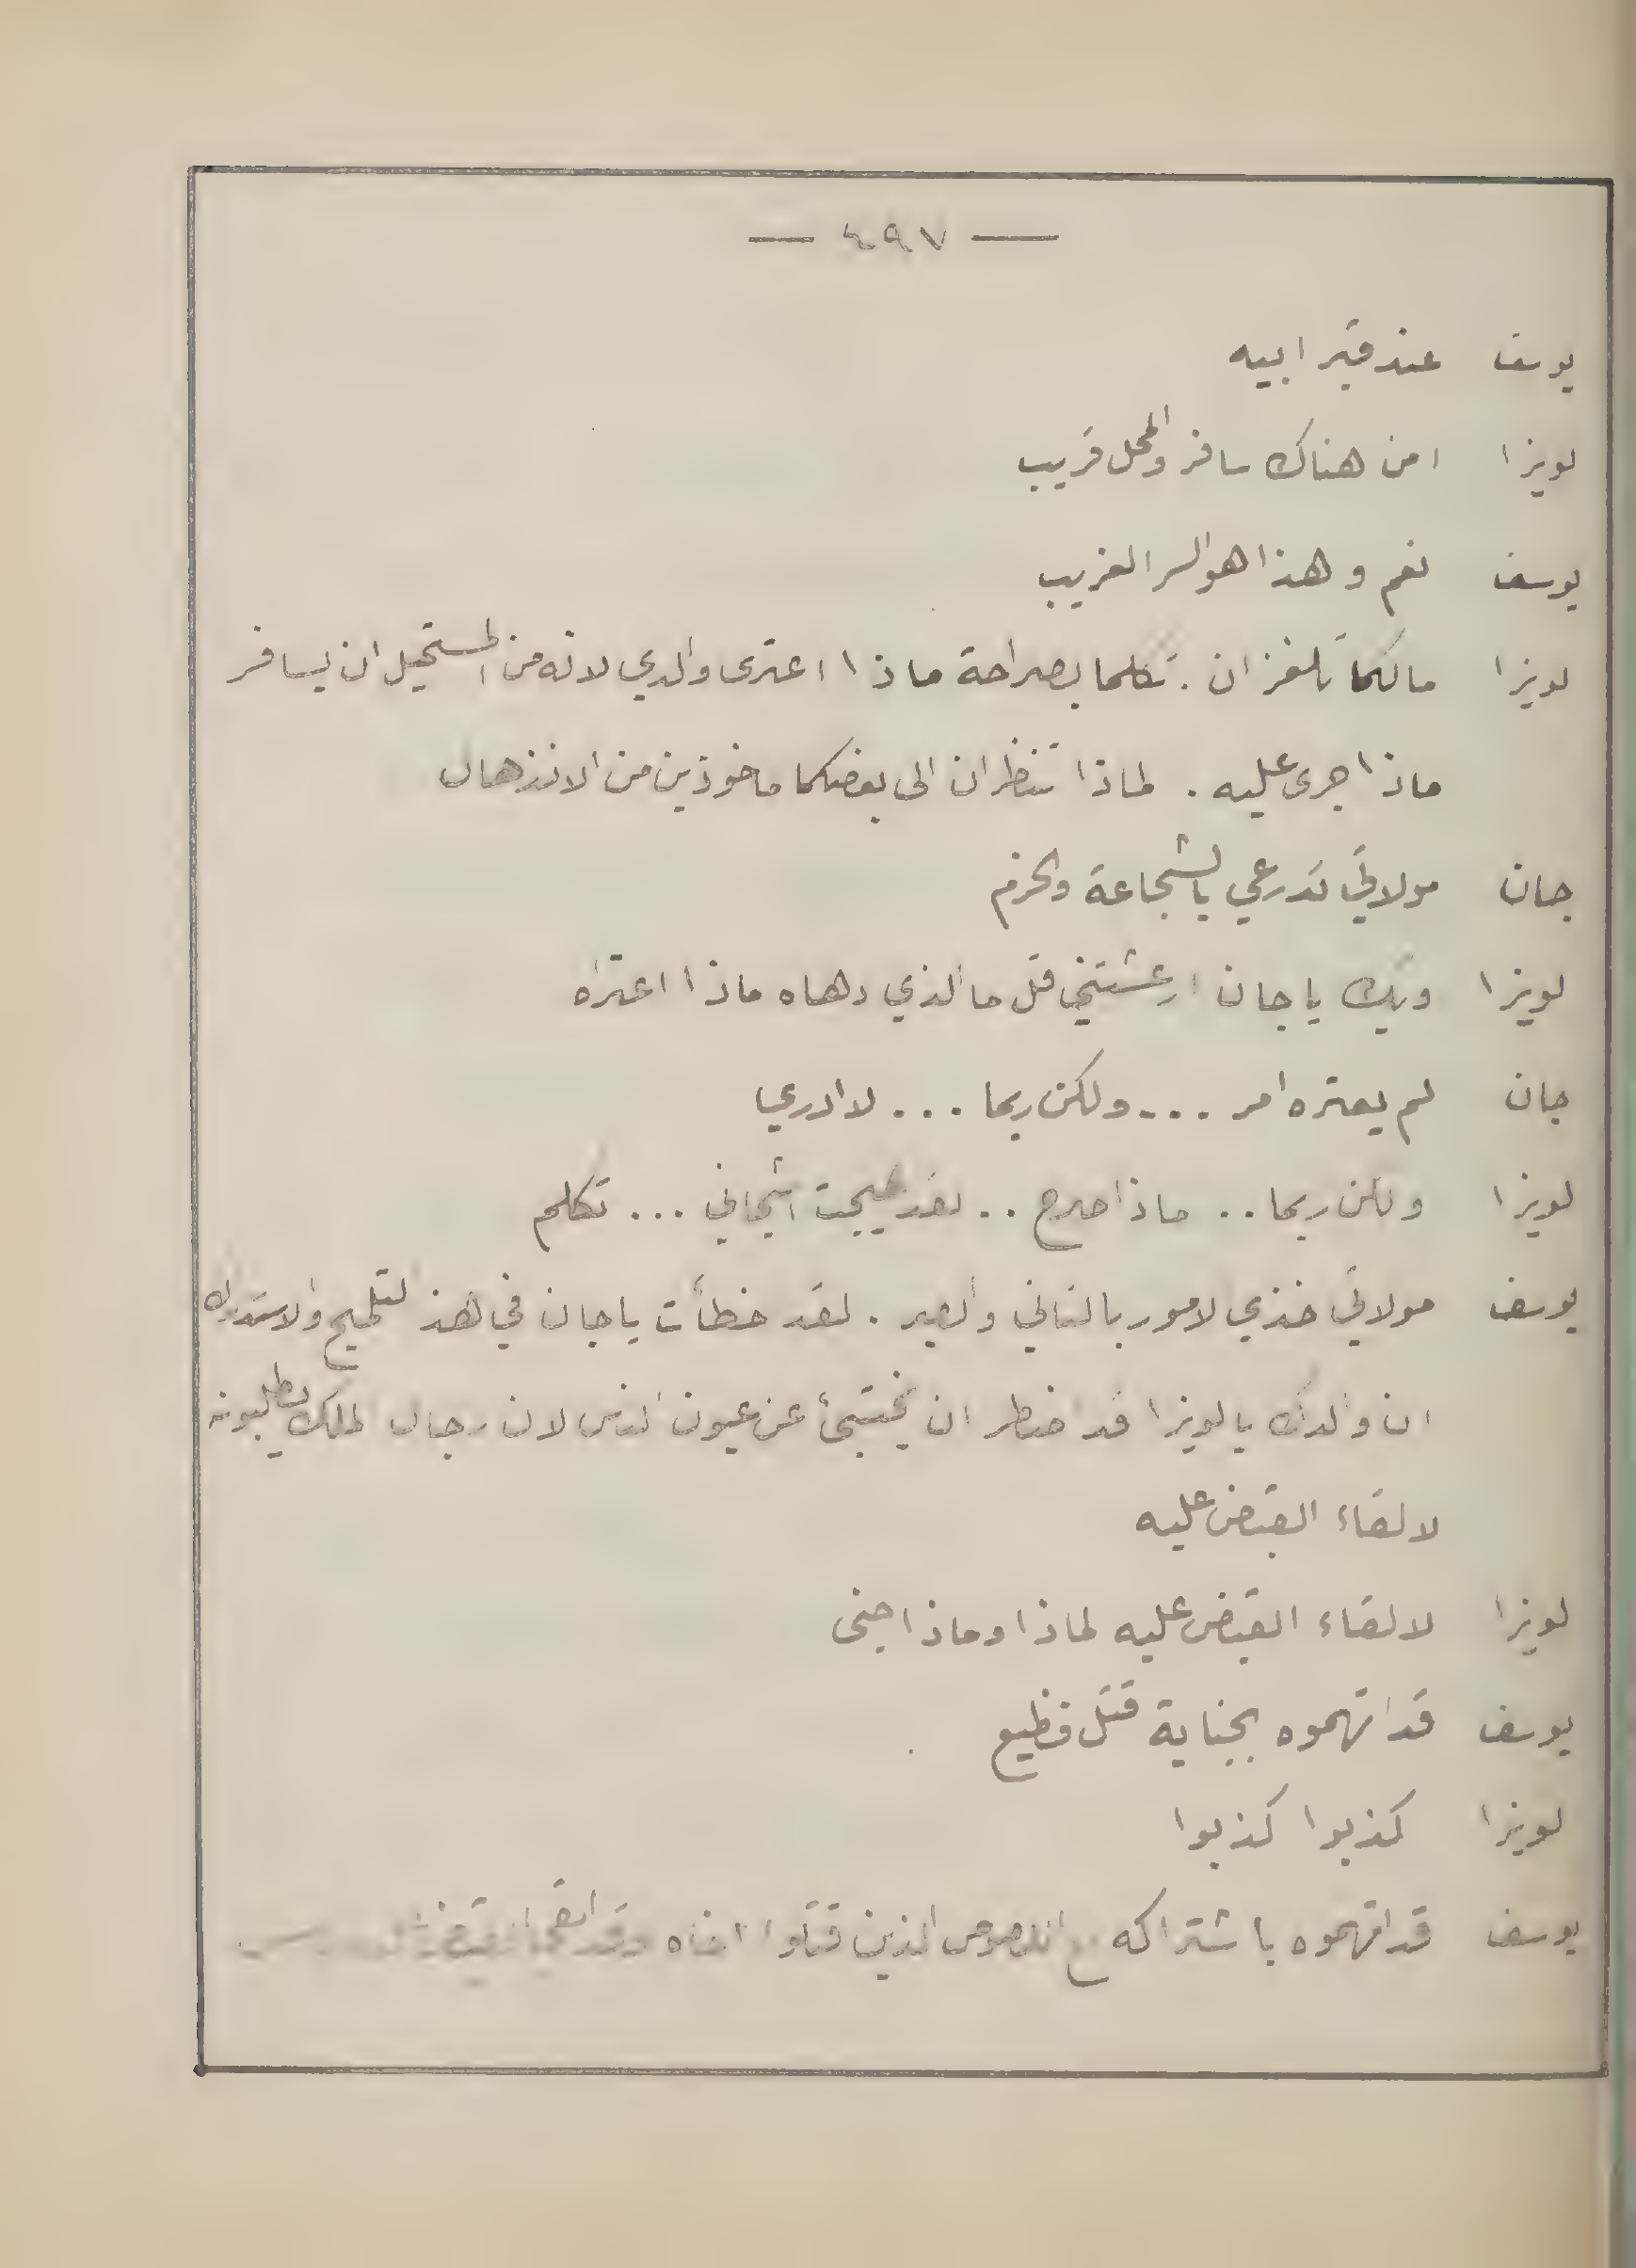 — ٤٩٧ —
يوسف عند قبر ابيه
لويزا امن هناك سافر والمحل قريب
يوسف نعم وهذا هو السر الغريب
لويزا مالكما تلغزان . تكلما بصراحة ماذا اعترى والدي لانه من المستحيل ان يسافر
ماذا جرى عليه . لماذا تنظران الى بعضكما ماخوذين من الانذهال
جان مولاتي تدرعي بالشجاعة والحزم
لويزا ويك يا جان ارعشتني قل ما الذي دهاه ماذا اعتراه
جان لم يعتره امر .... ولكن ربما ... لا ادري
لويزا ولكن ربما .. ماذا صرح .. لقد هيجت اشجاني ... تكلم
يوسف مولاتي خذي لامور بالتاني والصبر . لقد خطأت يا جان في هذ التلميح والاستدراك
ان والدك يا لويزا قد اضطر ان يختبئ عن عيون الناس لان رجال الملك يطلبونه
لالقاء القبض عليه
لويزا لالقاء القبض عليه لماذا وماذا جنى
يوسف قد اتهموه بجناية قتل فظيع
لويزا كذبوا كذبوا
يوسف قد اتهموه باشتراكه مع اللصوص الذين قتلوا اخاه